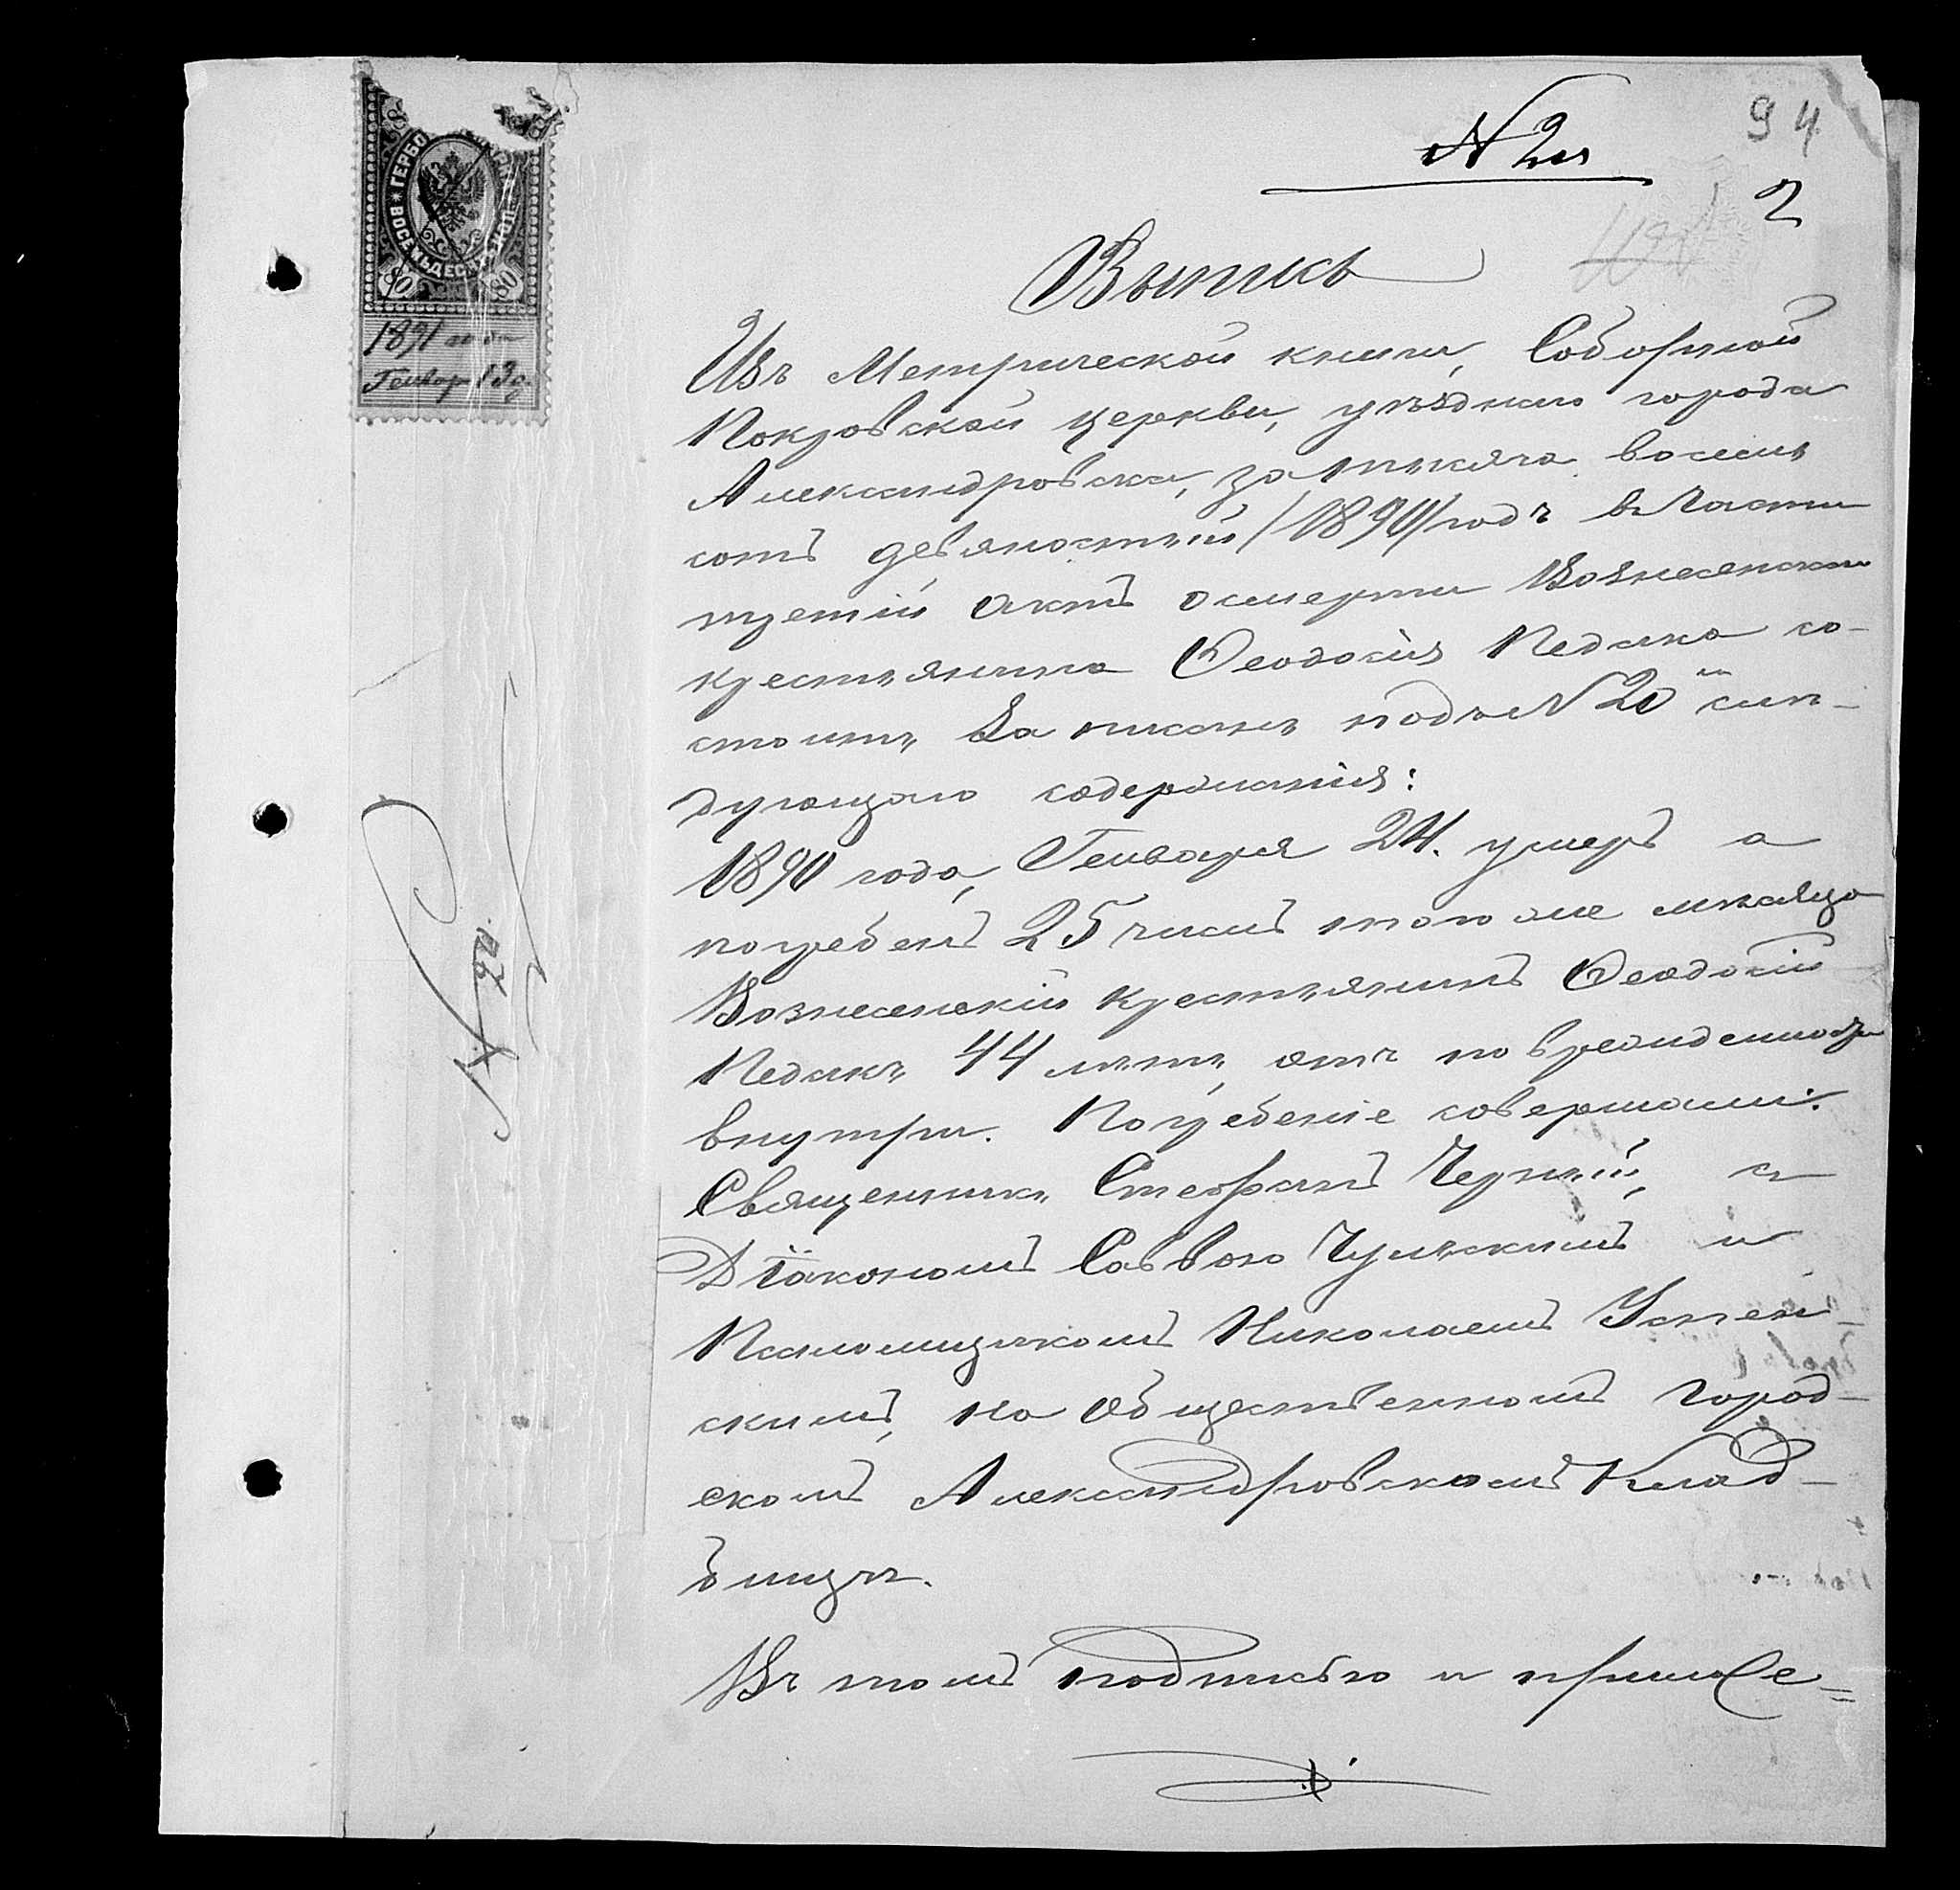 94
№ 2й
2
Выпись
Изъ Метрической книги, Соборной
Покровской церкви, уѣзднаго города
Александровска, за тысяча восемь
сотъ девяностый /1890/ годъ въ части
третій актъ о смерти Вознесенскаго
крестьянина Феодосія Педака со-
стоитъ записанъ подъ № 20м слѣ-
дующаго содержанія:
1890 года, Генваря 24. умеръ а
погребенъ 25 числъ того же мѣсяца
Вознесенскій крестьянинъ Феодосій
Педакъ 44 лѣтъ, отъ поврежденности
внутри. Погребеніе совершали:
Священникъ Стефанъ Черный, съ
Діакономъ Саввою Чульскимъ и
Псаломщикомъ Николаемъ Успен-
скимъ, на Общественномъ город-
скомъ Александровскомъ Клад-
бищѣ.
Въ томъ подписью и прило-
ГЕРБО
ВОСЕМЬДЕСЯТЪ КОП.
80 80
1891 года
Генваря 13 д.